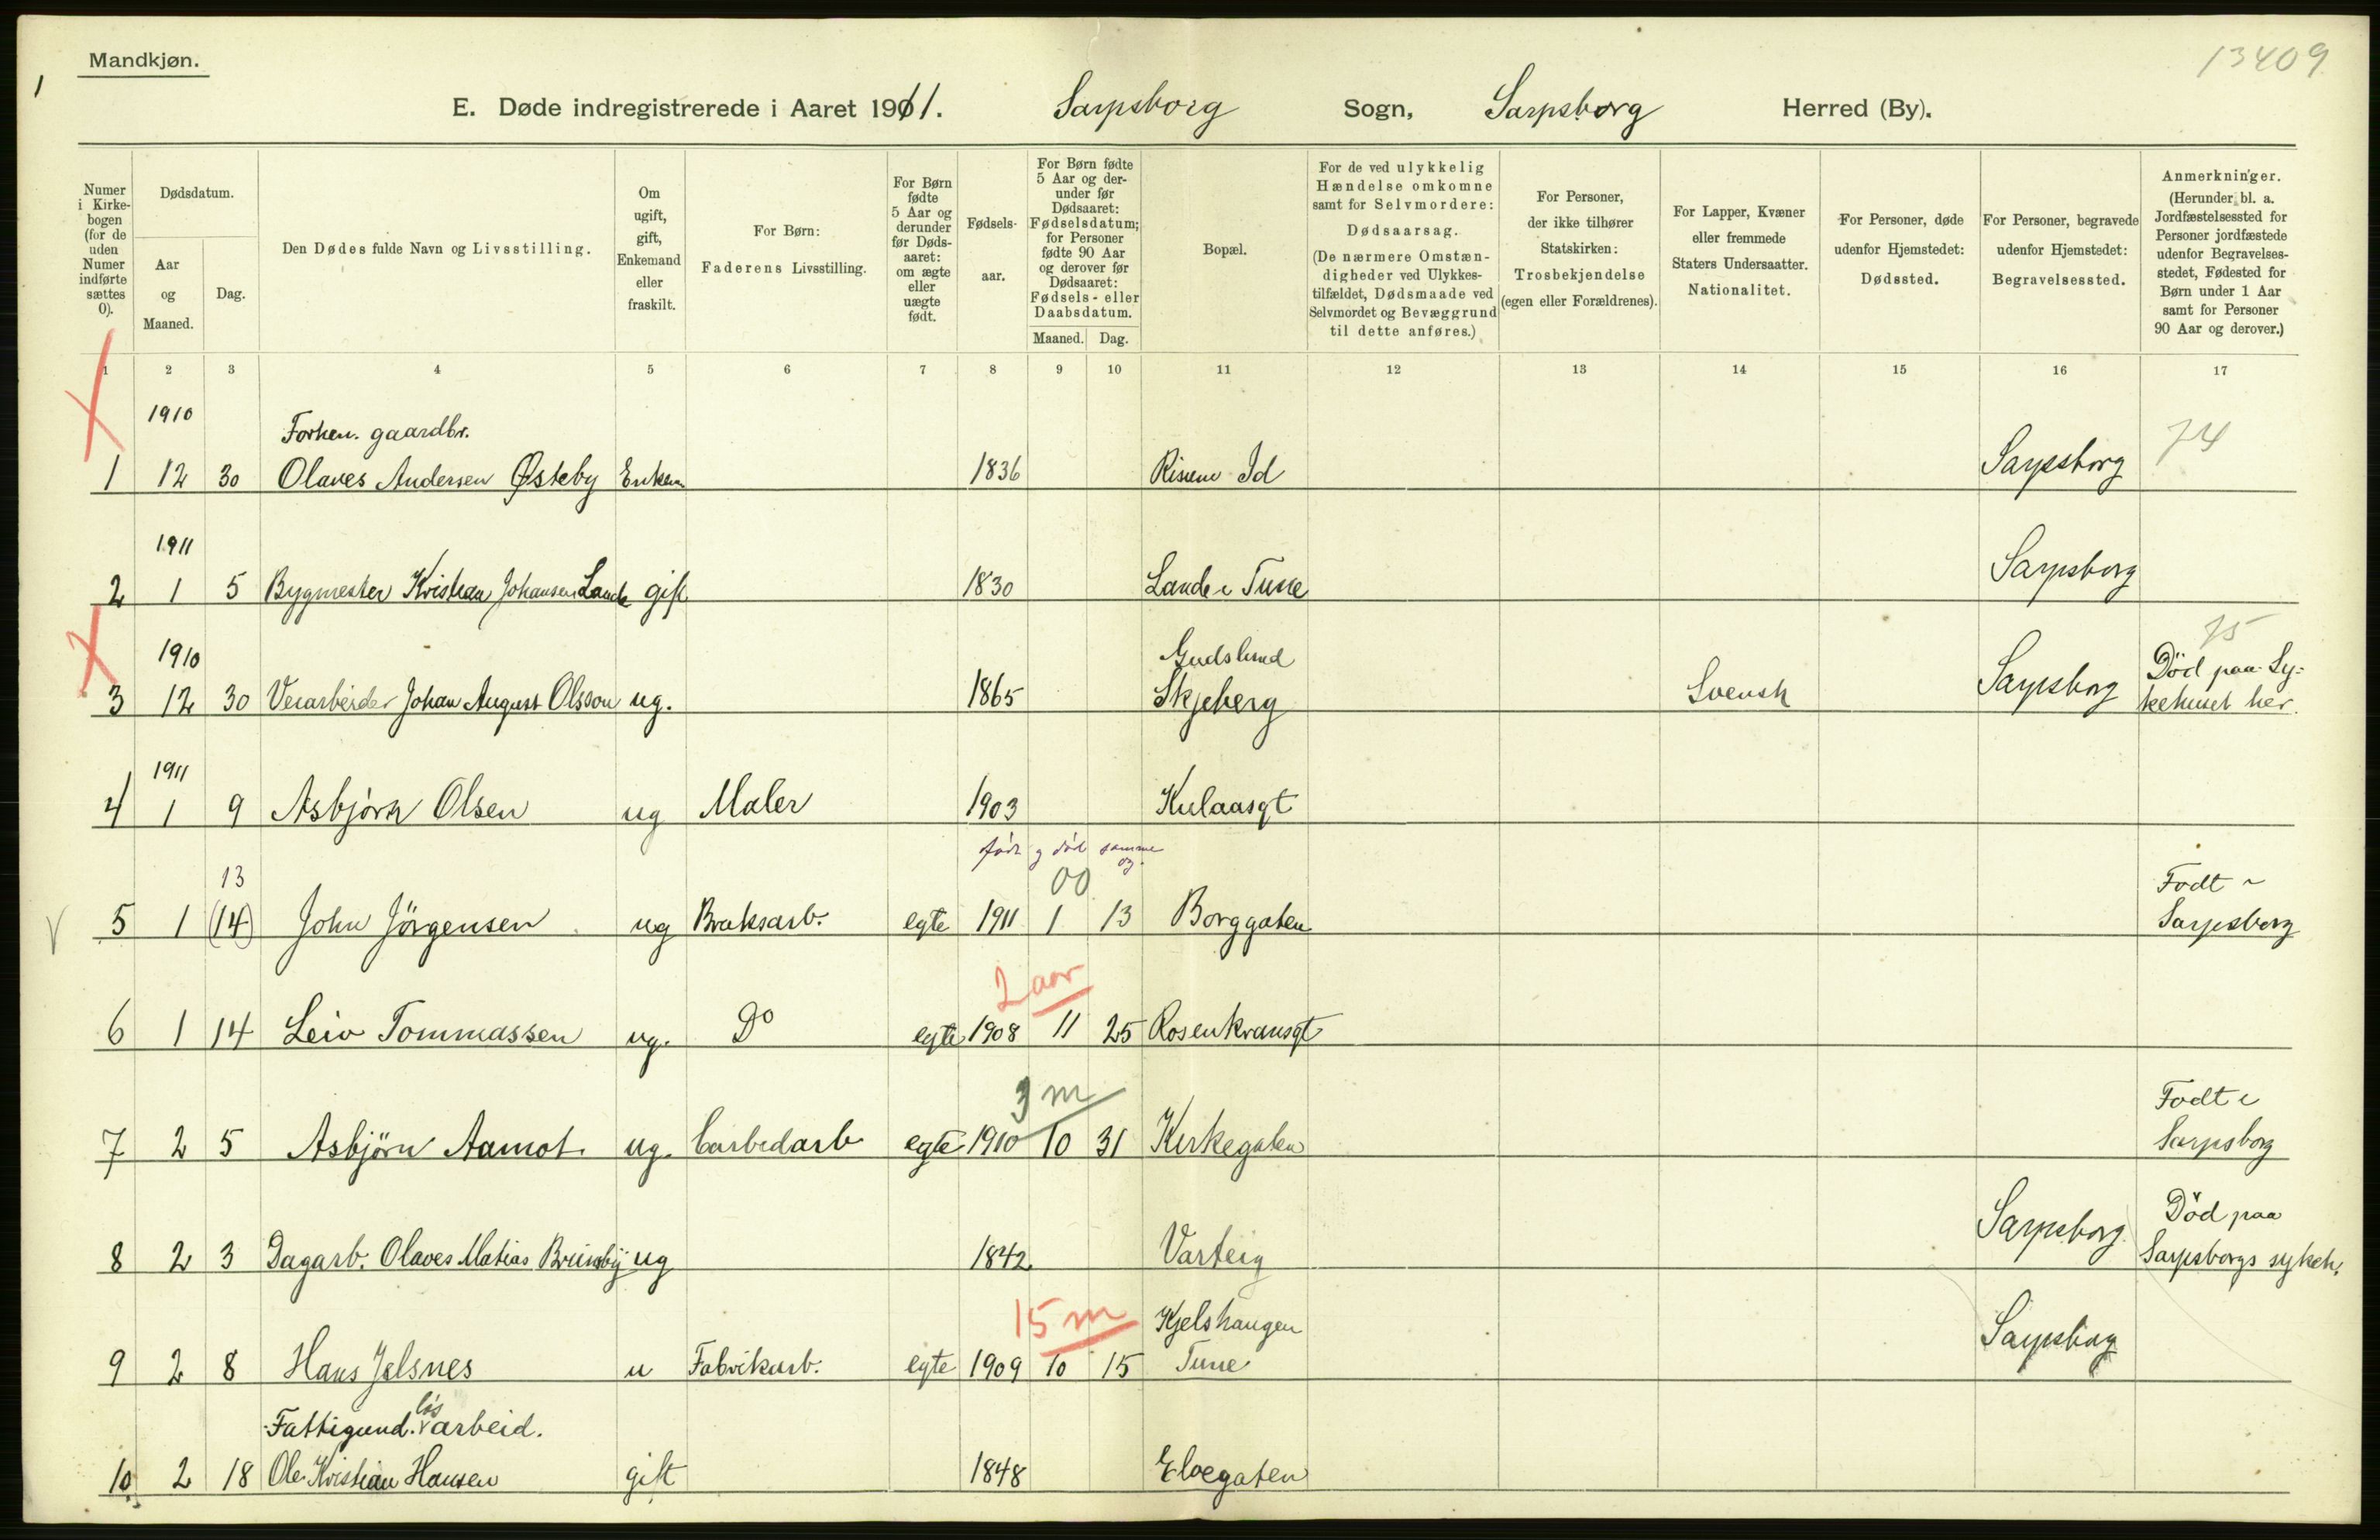 Mandkjøn.
13409
1
E. Døde indregistrerede i Aaret 1911. Sarpsborg Sogn, Sarpsborg Herred (By).
Numer i Kirke-bogen (for de uden Numer indførte sættes 0).
Dødsdatum.
Aar og Maaned.
Dag.
Den Dødes fulde Navn og Livsstilling.
Om ugift, gift, Enkemand eller fraskilt.
For Børn: Faderens Livsstilling.
For Børn fødte 5 Aar og derunder før Døds-aaret: om ægte eller uægte født.
Fødsels-aar.
For Børn fødte 5 Aar og der-under før Dødsaaret: Fødselsdatum; for Personer fødte 90 Aar og derover før Dødsaaret: Fødsels- eller Daabsdatum.
Maaned. Dag.
Bopæl.
For de ved ulykkelig Hændelse omkomne samt for Selvmordere: Dødsaarsag. (De nærmere Omstæn-digheder ved Ulykkes-tilfældet, Dødsmaade ved Selvmordet og Bevæggrund til dette anføres.)
For Personer, der ikke tilhører Statskirken: Trosbekjendelse (egen eller Forældrenes).
For Lapper, Kvæner eller fremmede Staters Undersaatter. Nationalitet.
For Personer, døde udenfor Hjemstedet: Dødssted.
For Personer, begravede udenfor Hjemstedet: Begravelsessted.
Anmerkninger. (Herunder bl. a. Jordfæstelsessted for Personer jordfæstede udenfor Begravelses-stedet, Fødested for Børn under 1 Aar samt for Personer 90 Aar og derover.)
1 2 3 4 5 6 7 8 9 10 11 12 13 14 15 16 17
1910
Forhen. gaardbr.
74
1 12 30 Olaves Andersen Østeby Enkem 1836 Id Sarpsborg
1911
2 1 5 Bygmester Kristian Johansen Lande gift 1830 Lande i Tune Sarpsborg
1910 Gudslund 75
3 12 30 Veiarbeider Johan August Olsson ug. 1865 Skjeberg Svensk Sarpsborg Död paa Sy-
kehuset her.
1911
4 1 9 Asbjörn Olsen ug Maler 1903 Kulaasgt
født og död samme dag.
13 00 Födt i
5 1 (14) John Jörgensen ug Bruksarb. egte 1911 1 13 Borggaten Sarpsborg
2 aar
6 1 14 Leiv Tommassen ug. Do egte 1908 11 25 Rosenkransgt
3 m Födt i
7 2 5 Asbjörn Aamot ug. Carbidarb egte 1910 10 31 Kirkegaten Sarpsborg
Död paa
8 2 3 Dagarb. Olaves Matias ug 1842 Varteig Sarpsborg Sarpsborgs sykeh.
15 m Kjelshaugen
9 2 8 Hans Jelsnes u Fabrikarb. egte 1909 10 15 Tune Sarpsborg
Fattigund. løsarbeid.
10 2 18 Ole Kristian Hansen gift 1848 Elvegaten